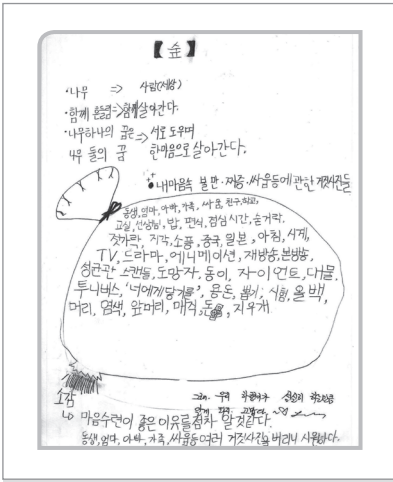 【숲】
·나무 => 사람(세상)
·함께 흔들림=>함께 살아간다.
·나무하나의 꿈은=> 서로 도우며
나무 들의 꿈 한마음으로살아간다.
●내마음속 불만·짜증·싸움등에관한 거짓사진들
동생,엄마,아빠,가족,싸움,친구,학교,
교실,선생님,밥,편식,점심시간,숟가락,
젓가락,지각,소풍,중국,일본,아침,시계,
TV,드라마,애니메이션,재방송,본방송,
성균관 스캔들,도망자,동이,자이언트,대물,
투니버스,'너에게닿기를',용돈,뽑기,시험,올백,
머리,염색,앞머리,매직,돈,지우개
소감
그래. 우리
↳ 마음수련이 좋은이유를점차 알것같다.
동생,엄마,아빠,가족,싸움등여러 거짓사진을버리니 시원하다.